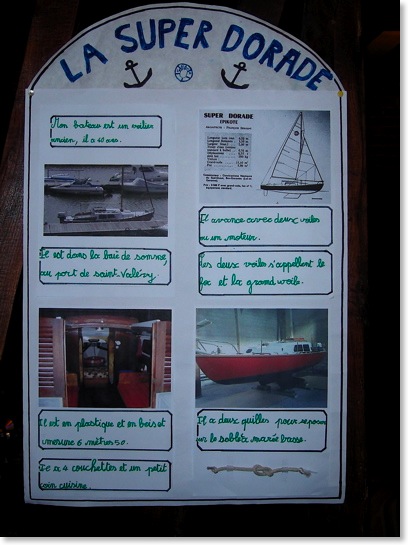 LA SUPER DORADE
Mon bateau est un voilier
ancien, il a 40 ans.
Il est dans la baie de somme
au port de saint-Valéry.
Il est en plastique et en bois et
mesure 6 mètres 50.
Il a 4 couchettes et un petit
coin cuisine.
SUPER DORADE
Il avance avec deux voiles
ou un moteur.
Les deux voiles s'appellent le
foc et la grand voile.
Il a deux quilles pour se poser
sur le sable à marée basse.